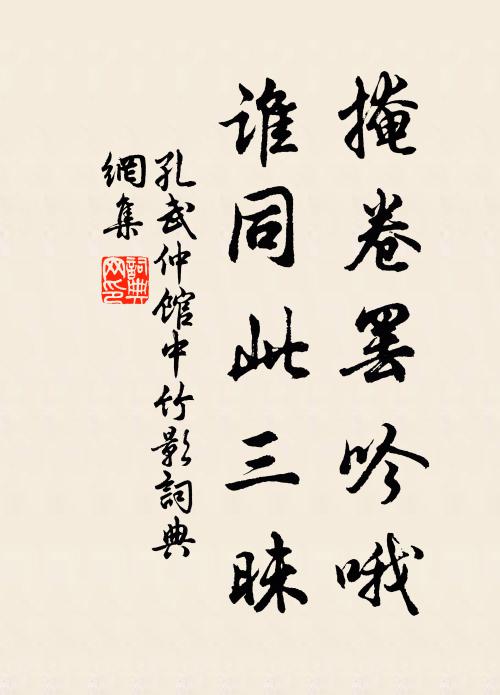 掩卷罢吟哦
谁同此三昧
孔武仲馆中竹影詞典
網集
詞典
网印